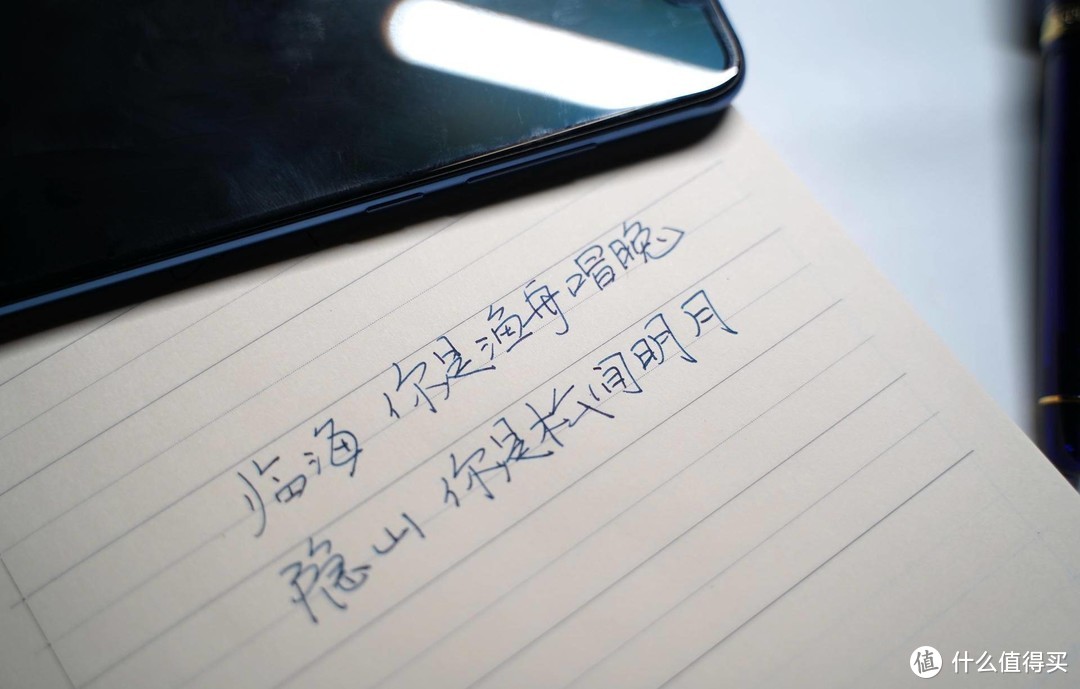 临海 你是渔舟唱晚
隐山 你是松间明月
值 什么值得买